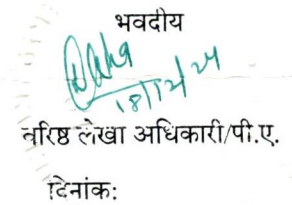 भवदीय
18/12/24
वरिष्ठ लेखा अधिकारी/पी.ए.
दिनांक: